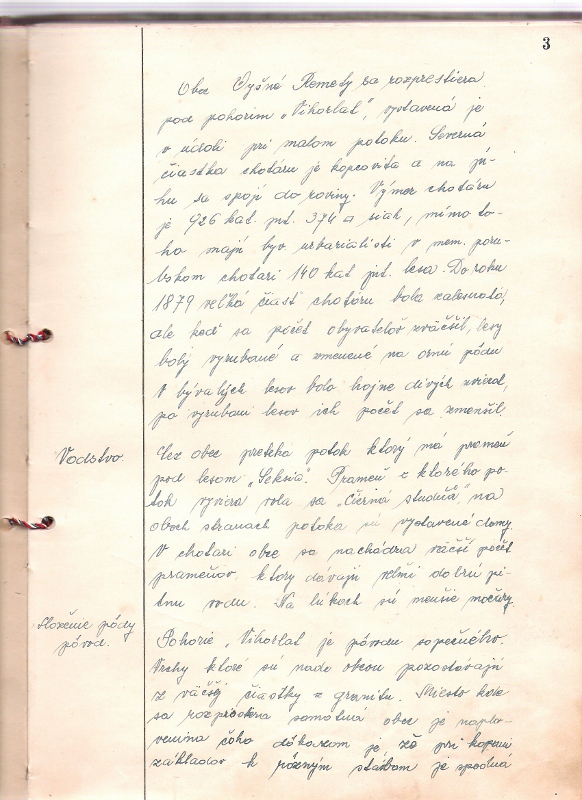 3
Obec Vyšné Remety sa rozprestiera
pod pohorim „Vihorlat", vystavená je
v údolí pri malom potoku. Severná
čiastka chotáru je kopcovita a na ju-
hu sa spojí do roviny. Výmer chotáru
je 926 kat. jut. 374 □ siah, mimo to-
ho majú byv. urbarialisti v nem. poru-
bskom chotari 140 kat jut. lesa. Do roku
1879 veľká čiasť chotáru bola zalesnotá,
ale keď sa počet obyvateľov zväčšil, lesy
boly vyrubané a zmenené na ornú pôdu
V bývalých lesov bolo hojne divých zvierat,
po vyrubani lesov ich počet sa zmenšil.
Vodstvo.
Cez obec preteká potok ktorý má prameň
pod lesom „Sekšia". Prameň z ktorého po-
tok vyviera vola sa „čierna studňa" na
oboch stranach potoka sú vystavené domy.
V chotari obce sa nachádza väčší počet
prameňov, ktory dávajú veľmi dobrú pi-
tnu vodu. Na lúkoch sú menšie močiary.
Složenie pôdy
pôvod.
Pohorie „Vihorlat je pôvodu sopečného.
Vrchy ktoré sú nado obcou pozostávajú
z väčšej čiastky z granitu. Miesto kde
sa rozprestiena samotná obec je naplo-
venina čoho dôkazom je, že pri kopani
základov k rôznym stavbam je spodná